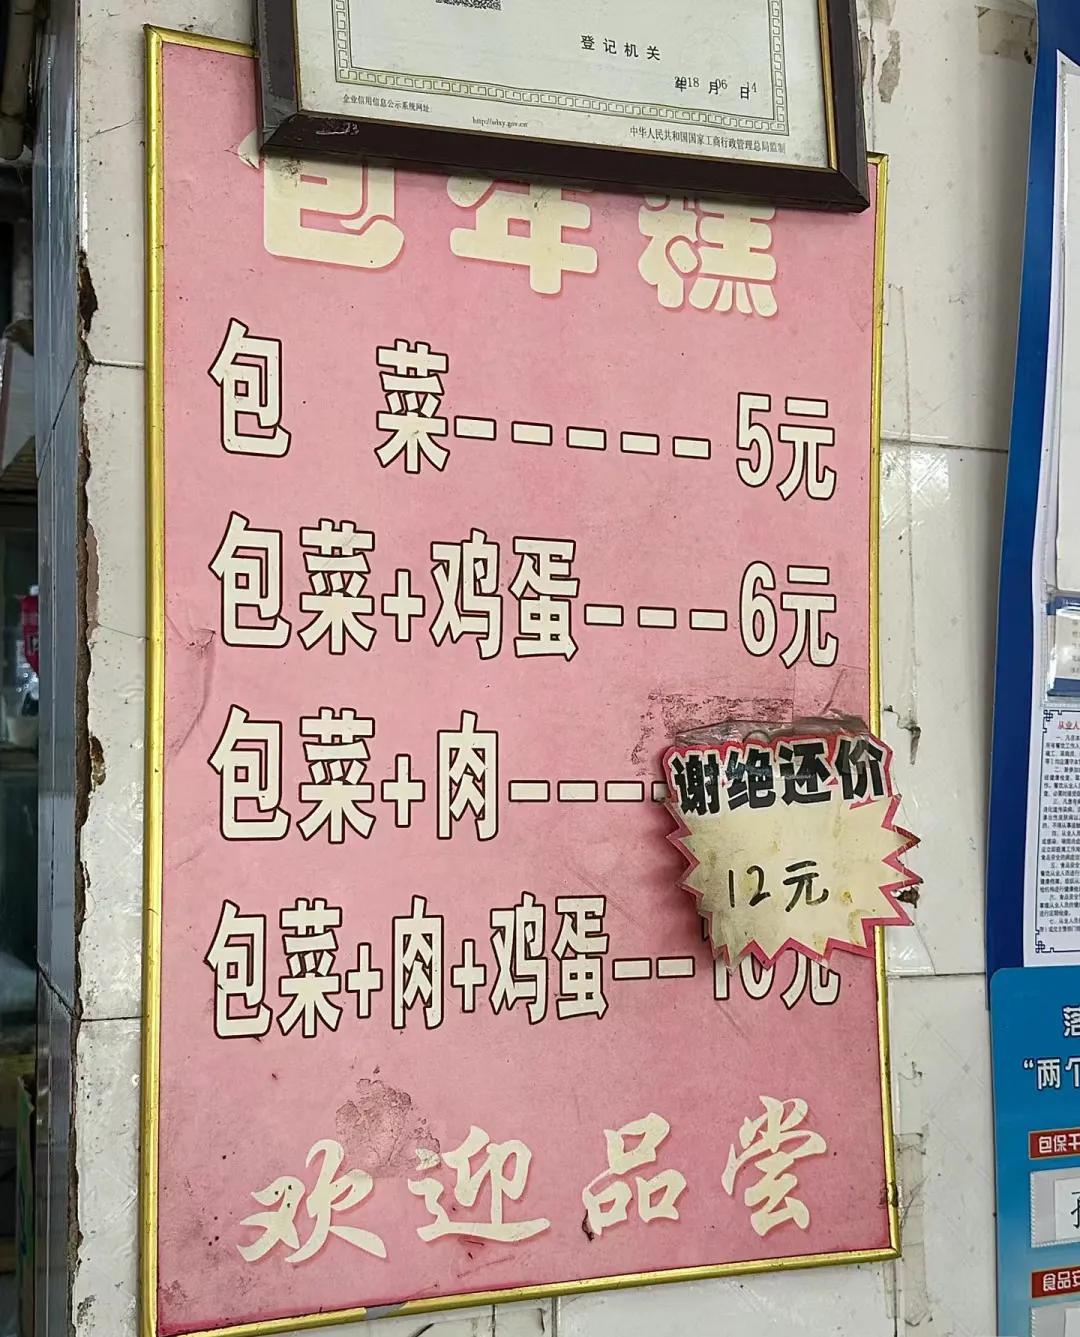 登记机关
2018年06月14日
企业信用信息公示系统网址:
中华人民共和国国家工商行政管理总局监制
包年糕
包 菜-----5元
包菜+鸡蛋---6元
包菜+肉----
谢绝还价
12元
包菜+肉+鸡蛋--10元
欢迎品尝
"两个
包保干
食品安